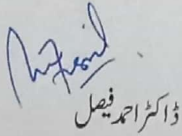 ڈاکٹر احمد فیصل